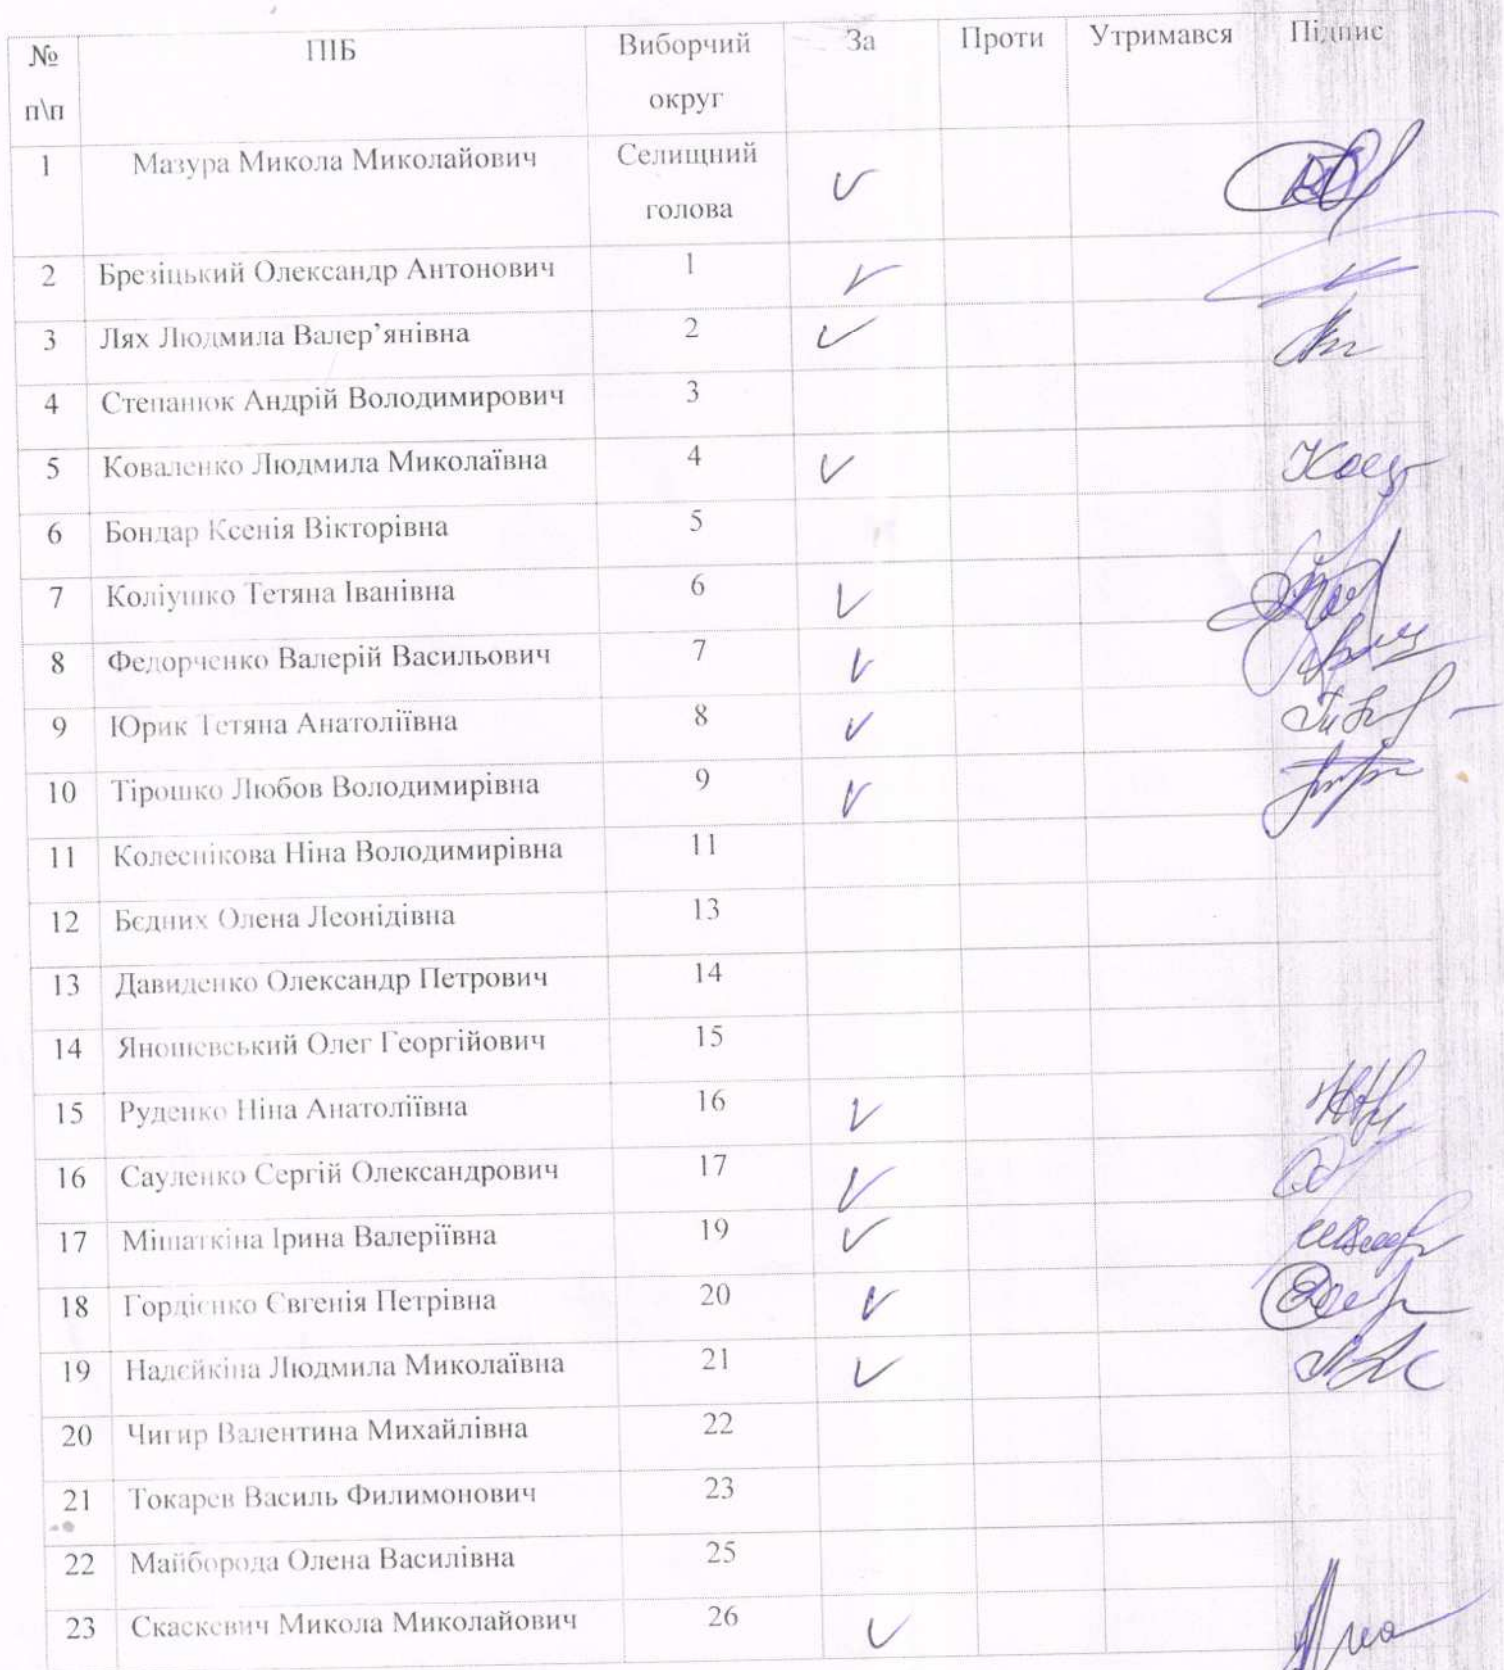 № п\п ПІБ Виборчий округ За Проти Утримався Підпис
1 Мазура Микола Миколайович Селищний голова V
2 Брезіцький Олександр Антонович 1 V
3 Лях Людмила Валер’янівна 2 V
4 Степанюк Андрій Володимирович 3
5 Коваленко Людмила Миколаївна 4 V
6 Бондар Ксенія Вікторівна 5
7 Коліушко Тетяна Іванівна 6 V
8 Федорченко Валерій Васильович 7 V
9 Юрик Тетяна Анатоліївна 8 V
10 Тірошко Любов Володимирівна 9 V
11 Колеснікова Ніна Володимирівна 11
12 Бєдних Олена Леонідівна 13
13 Давиденко Олександр Петрович 14
14 Яношевський Олег Георгійович 15
15 Руденко Ніна Анатоліївна 16 V
16 Сауленко Сергій Олександрович 17 V
17 Мішаткіна Ірина Валеріївна 19 V
18 Гордієнко Євгенія Петрівна 20 V
19 Надєйкіна Людмила Миколаївна 21 V
20 Чигир Валентина Михайлівна 22
21 Токарев Василь Филимонович 23
22 Майборода Олена Василівна 25
23 Скаскевич Микола Миколайович 26 V